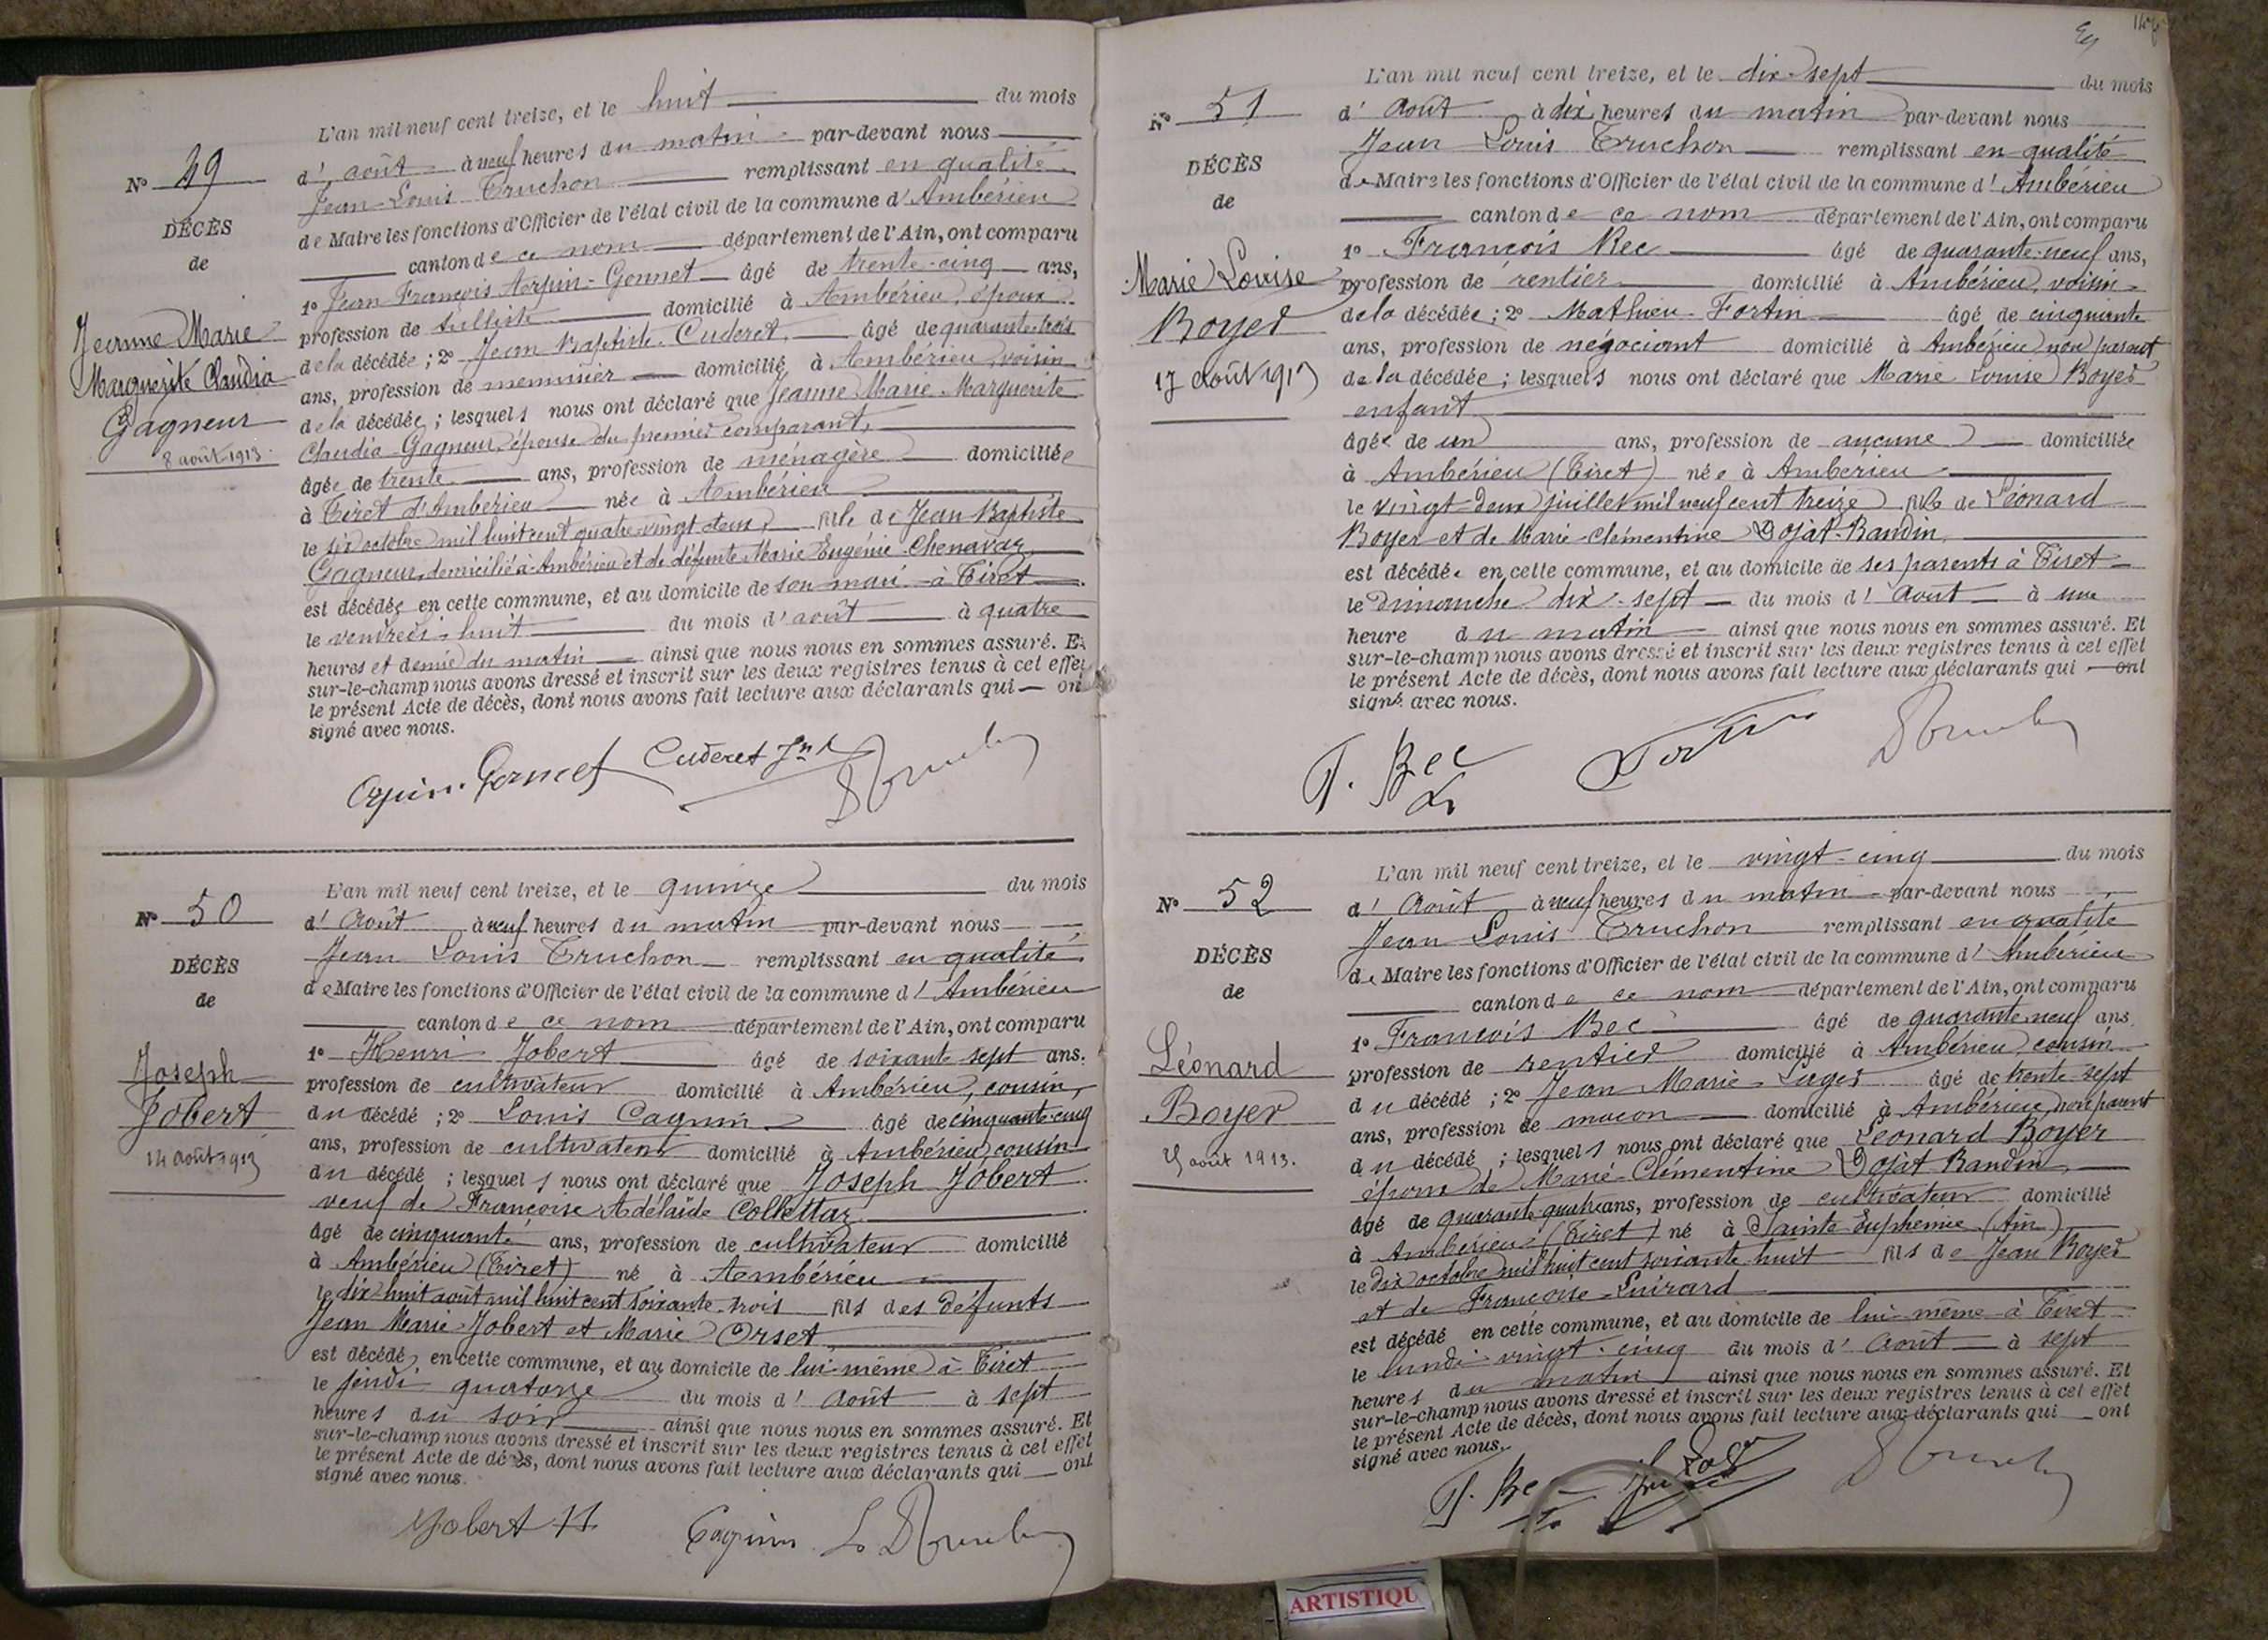 L'an mil neuf cent treize, et le huit du mois
d' août à neuf heures du matin par-devant nous
Jean-Louis Truchon remplissant en qualité
de Maire les fonctions d'Officier de l'état civil de la commune d'Ambérieu
canton de ce nom département de l'Ain, ont comparu
1° Jean François Arpin-Gonnet âgé de trente-cinq ans,
profession de tulliste domicilié à Ambérieu, époux
de la décédée ; 2° Jean Baptiste Cuderet, âgé de quarante-trois
ans, profession de menuisier domicilié à Ambérieu, voisin
de la décédée ; lesquels nous ont déclaré que Jeanne Marie Marguerite
Claudia Gagneur, épouse du premier comparant,
âgée de trente ans, profession de ménagère domiciliée
à Tiret d'Ambérieu née à Ambérieu
le six octobre mil huit cent quatre-vingt deux, fille de Jean Baptiste
Gagneur, domicilié à Ambérieu et de défunte Marie Eugénie Chenavaz
est décédée en cette commune, et au domicile de son mari à Tiret
le vendredi huit du mois d'août à quatre
heures et demie du matin ainsi que nous nous en sommes assuré. Et
sur-le-champ nous avons dressé et inscrit sur les deux registres tenus à cet effet
le présent Acte de décès, dont nous avons fait lecture aux déclarants qui ont
signé avec nous.
N° 49
DÉCÈS
de
Jeanne Marie
Marguerite Claudia
Gagneur
8 août 1913.
Arpin-Gonnet Cuderet Jn
L'an mil neuf cent treize, et le quinze du mois
d' Août à neuf heures du matin par-devant nous
Jean Louis Truchon remplissant en qualité
de Maire les fonctions d'Officier de l'état civil de la commune d' Ambérieu
canton de ce nom département de l'Ain, ont comparu
1° Henri Jobert âgé de soixante sept ans.
profession de cultivateur domicilié à Ambérieu, cousin,
du décédé ; 2° Louis Cagnin âgé de cinquante-cinq
ans, profession de cultivateur domicilié à Ambérieu, cousin
du décédé ; lesquels nous ont déclaré que Joseph Jobert
veuf de Françoise Adélaïde Collettaz
âgé de cinquante ans, profession de cultivateur domicilié
à Ambérieu (Tiret) né à Ambérieu
le dix huit août mil huit cent soixante-trois fils des défunts
Jean Marie Jobert et Marie Orset
est décédé en cette commune, et au domicile de lui-même à Tiret
le jeudi quatorze du mois d' Août à sept
heures du soir ainsi que nous nous en sommes assuré. Et
sur-le-champ nous avons dressé et inscrit sur les deux registres tenus à cet effet
le présent Acte de décès, dont nous avons fait lecture aux déclarants qui ont
signé avec nous.
N° 50
DÉCÈS
de
Joseph
Jobert
14 août 1913
Jobert H Cagnin
L'an mil neuf cent treize, et le dix-sept du mois
d' Août à dix heures du matin par-devant nous
Jean Louis Truchon remplissant en qualité
de Maire les fonctions d'Officier de l'état civil de la commune d' Ambérieu
canton de ce nom département de l'Ain, ont comparu
1° François Bec âgé de quarante-neuf ans,
profession de rentier domicilié à Ambérieu, voisin
de la décédée ; 2° Mathieu Fortin âgé de cinquante
ans, profession de négociant domicilié à Ambérieu, non parent
de la décédée ; lesquels nous ont déclaré que Marie Louise Boyer
enfant
âgée de un ans, profession de aucune domiciliée
à Ambérieu (Tiret) née à Ambérieu
le vingt-deux juillet mil neuf cent treize fille de Léonard
Boyer et de Marie-Clémentine Dojat-Bandin
est décédée en cette commune, et au domicile de ses parents à Tiret
le dimanche dix-sept du mois d' Août à une
heure du matin ainsi que nous nous en sommes assuré. Et
sur-le-champ nous avons dressé et inscrit sur les deux registres tenus à cet effet
le présent Acte de décès, dont nous avons fait lecture aux déclarants qui ont
signé avec nous.
N° 51
DÉCÈS
de
Marie Louise
Boyer
17 Août 1913
F. Bec Fortin
L'an mil neuf cent treize, et le vingt-cinq du mois
d' Août à neuf heures du matin par-devant nous
Jean Louis Truchon remplissant en qualité
de Maire les fonctions d'Officier de l'état civil de la commune d' Ambérieu
canton de ce nom département de l'Ain, ont comparu
1° François Bec âgé de quarante-neuf ans,
profession de rentier domicilié à Ambérieu, cousin
du décédé ; 2° Jean Marie Lager âgé de trente sept
ans, profession de maçon domicilié à Ambérieu, non parent
du décédé ; lesquels nous ont déclaré que Léonard Boyer
époux de Marie-Clémentine Dojat Bandin
âgé de quarante quatre ans, profession de cultivateur domicilié
à Ambérieu (Tiret) né à Sainte Euphémie (Ain)
le dix octobre mil huit cent soixante huit fils de Jean Boyer
et de Françoise Guirard
est décédé en cette commune, et au domicile de lui-même à Tiret
le lundi vingt-cinq du mois d' Août à sept
heures du matin ainsi que nous nous en sommes assuré. Et
sur-le-champ nous avons dressé et inscrit sur les deux registres tenus à cet effet
le présent Acte de décès, dont nous avons fait lecture aux déclarants qui ont
signé avec nous.
N° 52
DÉCÈS
de
Léonard
Boyer
25 août 1913.
F. Bec
ARTISTIQU